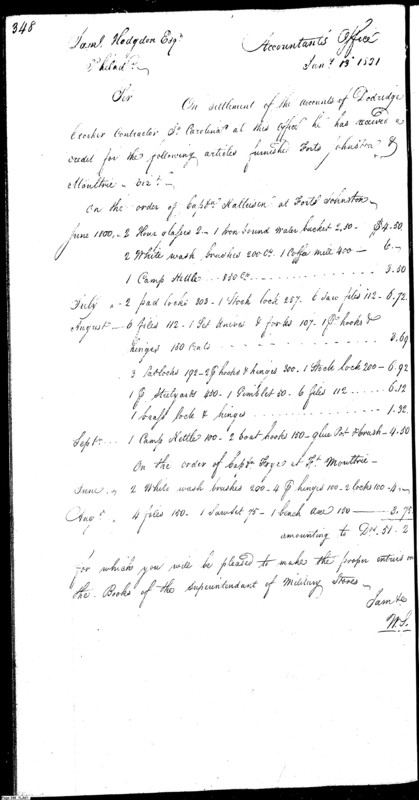 348
Saml. Hodgdon Esqr
Accountants Office
Philada
Jany. 13th 1801
Sir
On settlement of the accounts of Dodridge
Crocker Contractor So Carolina at this office he has received a
credit for the following articles furnished Forts Johnston &
Moultrie - Vizt.
On the order of Captn Kalteisen at Fort Johnston
June 1800, - 2 Hour glasses 2 - 1 Iron bound water bucket 2.50 - $4.50
2 White wash brushes 200 Cts. 1 Coffee mill 400 - 6 -
1 Camp Kettle ... 350 Cts ... 3.50
July " - 2 pad locks 303 - 1 Stock lock 257 - 6 saw files 112 - 6.72
August - 6 files 112 - 1 Set Knives & forks 107 - 1 pr hooks &
hinges 150 Cents ... 3.69
3 Padlocks 192 - 2 pr hooks & hinges 300 - 1 Stock lock 200 - 6.92
1 pr Steelyards 450 - 1 Gimblet 50 - 6 files 112 ... 6.12
1 brass lock & hinges ... 1.32
Septr ... 1 Camp Kettle 100 - 2 boat hooks 150 - glue Pot & brush - 4.50
On the order of Captn Frye at Ft. Moultrie -
June " - 2 White wash brushes 200 - 4 pr hinges 100 - 2 locks 100 - 4 -
Augt. , 4 files 150 - 1 Sawset 75 - 1 bench axe 150 - 3.75
amounting to Drs. 51. 2
for which you will be pleased to make the proper entries on
the Books of the Superintendant of Military Stores
I am &c
W.S.